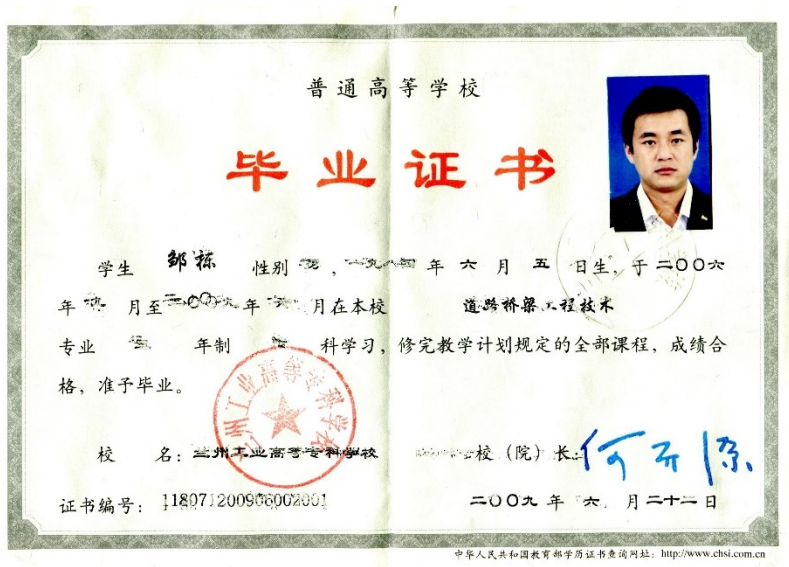 普通高等学校
毕业证书
学生 邹栋 性别 , 一九八四 年 六 月 五 日生,于 二〇〇六
年 月至 二〇〇九 年 六 月在本校 道路桥梁工程技术
专业 年制 科学习,修完教学计划规定的全部课程,成绩合
格,准予毕业。
兰州工业高等专科学校
校 名:兰州工业高等专科学校 校(院)长:
证书编号:118071200906002001 二〇〇九 年 六 月 二十二 日
中华人民共和国教育部学历证书查询网址:http://www.chsi.com.cn